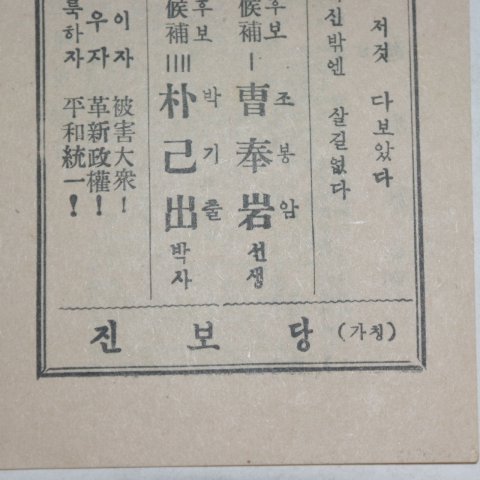 저것 다보았다
신밖엔 살길없다
후보 조봉암
候補 — 曺奉岩 선생
후보 박기출
候補 || 朴己出 박사
이자 被害大衆!
우자 革新政權!
룩하자 平和統一!
진 보 당 (가칭)